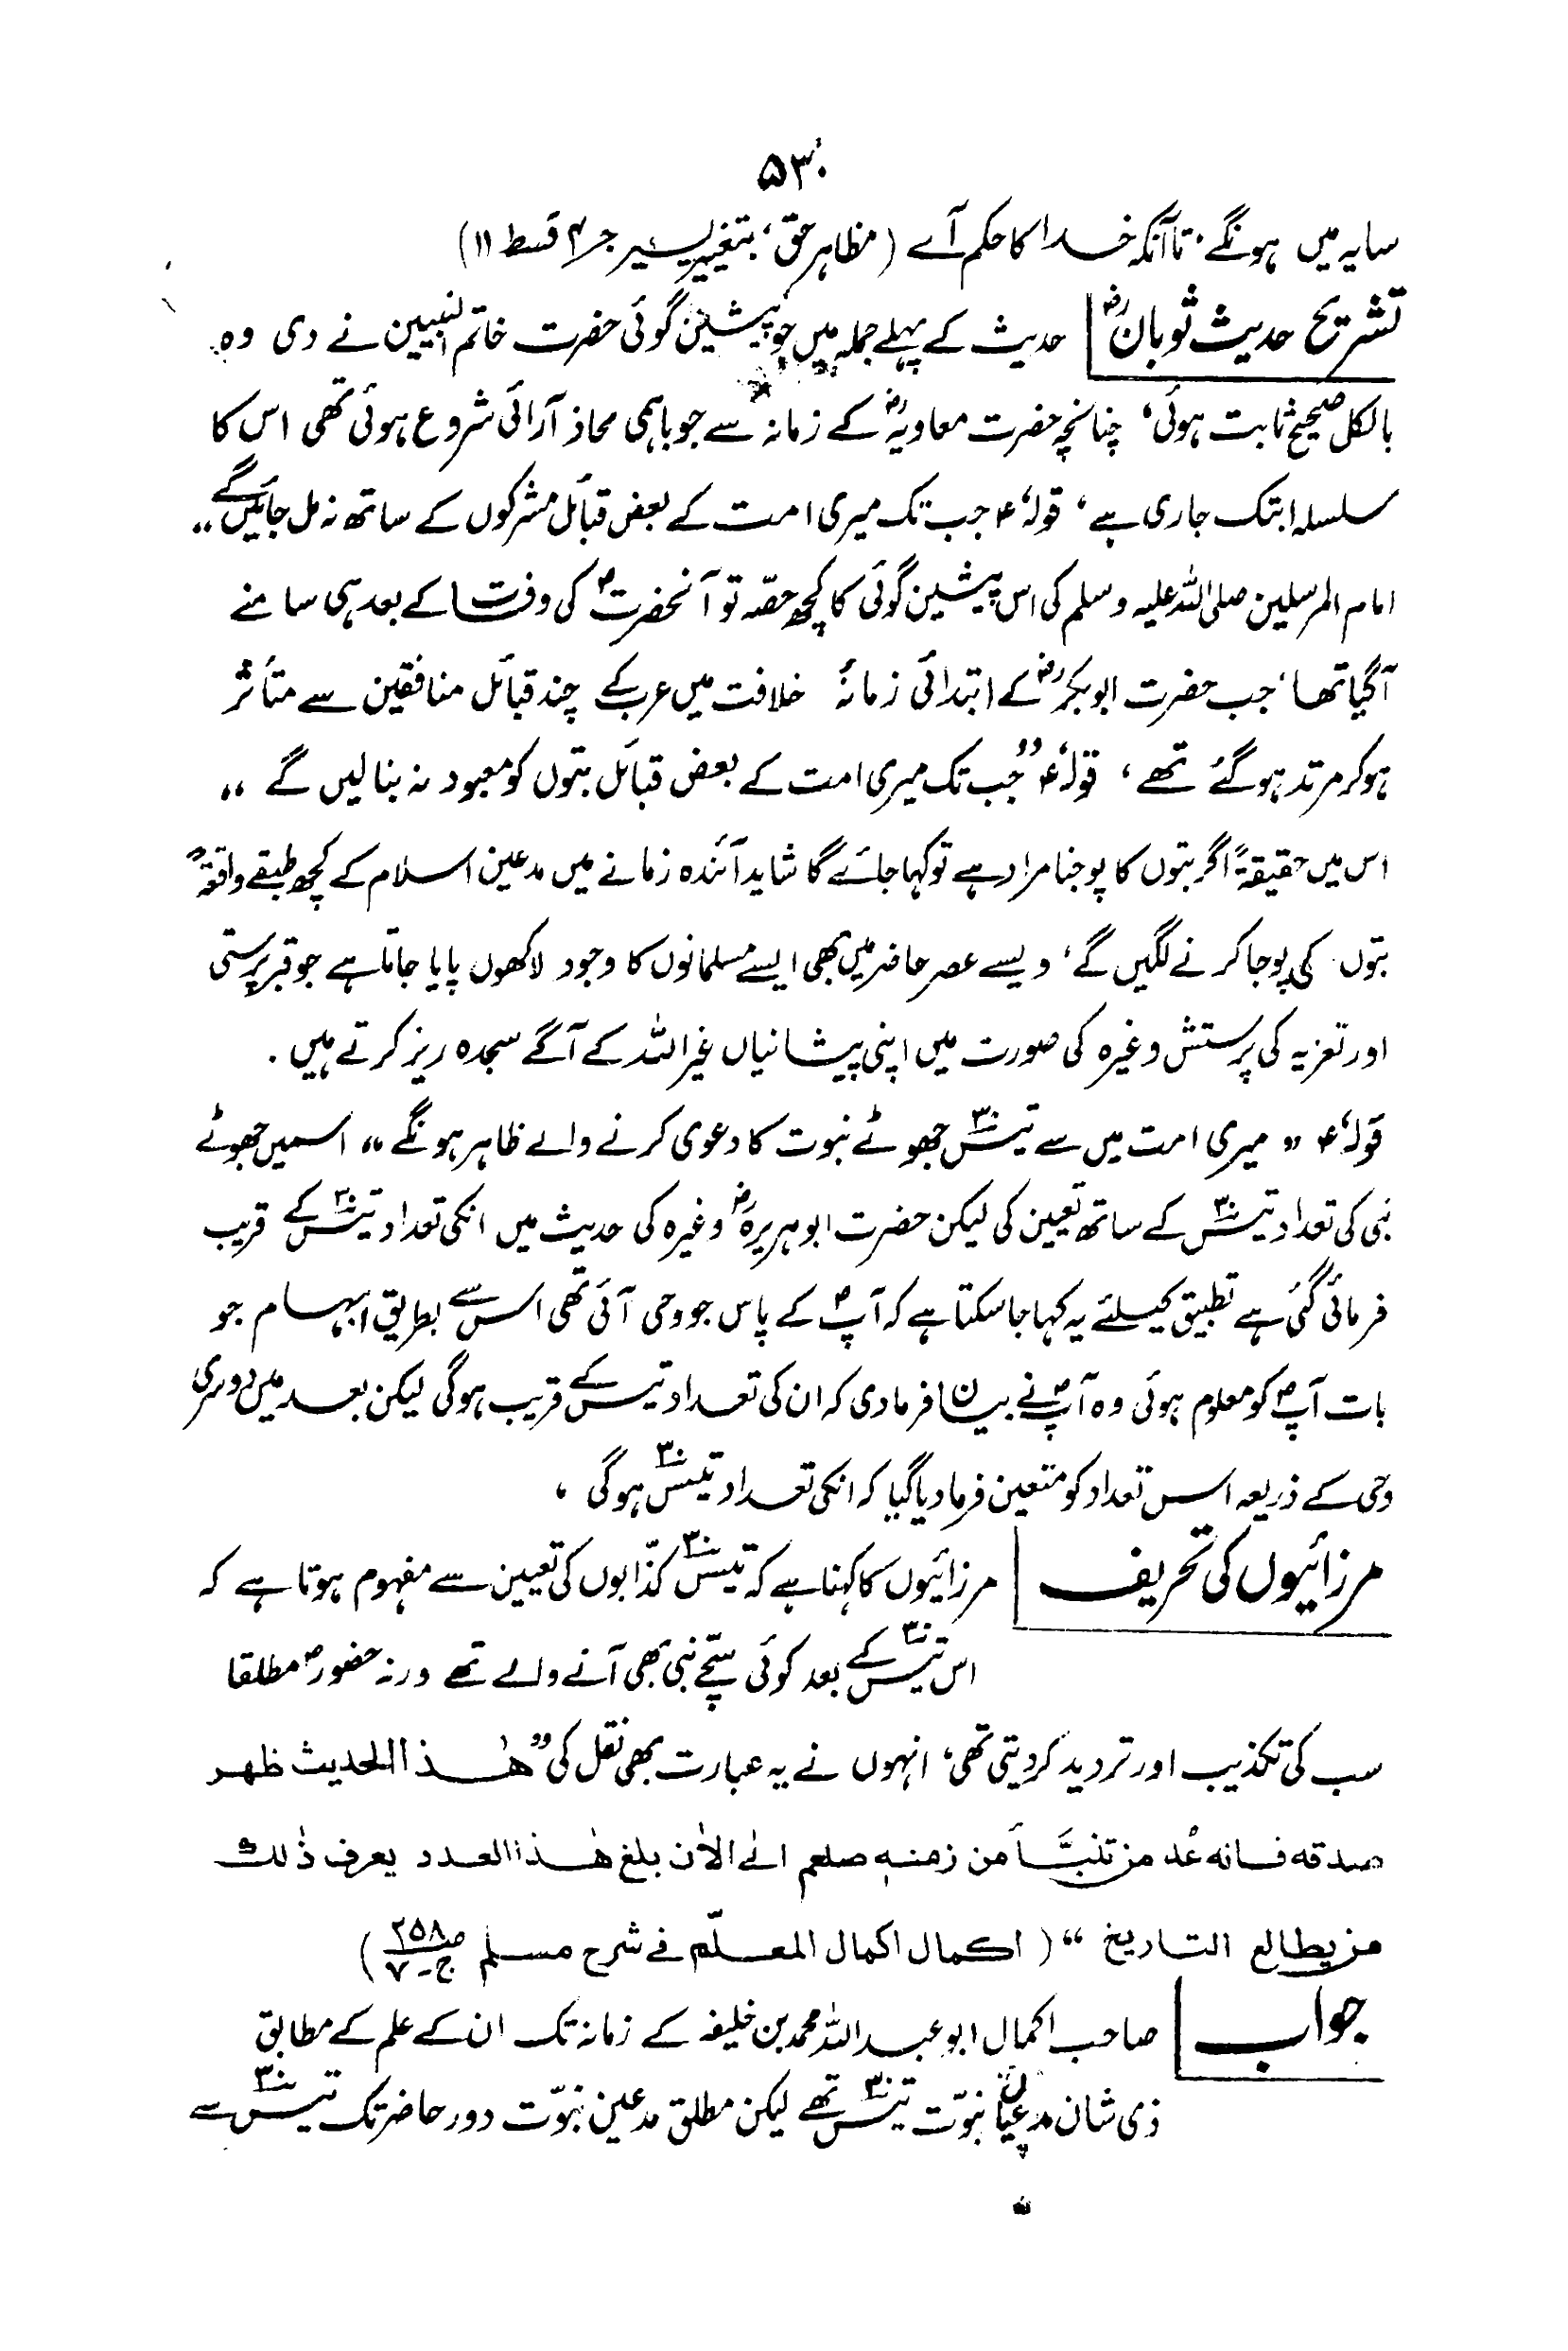 ۵۳۰
سایہ میں ہونگے، تاآنکہ خدا کا حکم آے (مظاہر حق، بتغییر یسیر جـ۴ قسط ۱۱)
تشریح حدیث ثوبانؓ حدیث کے پہلے جملہ میں جو پیشین گوئی حضرت خاتم النبیین نے دی وہ
بالکل صحیح ثابت ہوئی، چنانچہ حضرت معاویہؓ کے زمانہ سے جو باہمی محاذ آرائی شروع ہوئی تھی اس کا
سلسلہ ابتک جاری ہے، قولہٗ ؑ جب تک میری امت کے بعض قبائل مشرکوں کے ساتھ نہ مل جائیں گے ،،
امام المرسلین صلی اللہ علیہ وسلم کی اس پیشین گوئی کا کچھ حصّہ تو آنحضرتؐ کی وفات کے بعد ہی سامنے
آگیا تھا، جب حضرت ابوبکرؓ کے ابتدائی زمانۂ خلافت میں عرب کے چند قبائل منافقین سے متأثر
ہوکر مرتد ہوگئے تھے، قولہٗ ؑ ’’جب تک میری امت کے بعض قبائل بتوں کو معبود نہ بنالیں گے ،،
اس میں حقیقۃً اگر بتوں کا پوجنا مراد ہے تو کہا جائے گا شاید آئندہ زمانے میں مدعین اسلام کے کچھ طبقے واقعۃً
بتوں کی پوجا کرنے لگیں گے، ویسے عصر حاضر میں بھی ایسے مسلمانوں کا وجود لاکھوں پایا جاتا ہے جو قبر پرستی
اور تعزیہ کی پرستش وغیرہ کی صورت میں اپنی پیشانیاں غیر اللہ کے آگے سجدہ ریز کرتے ہیں .
قولہٗ ؑ ’’میری امت میں سے تیس۳۰ جھوٹے نبوت کا دعوی کرنے والے ظاہر ہونگے ،، اسمیں جھوٹے
نبی کی تعداد تیس۳۰ کے ساتھ تعیین کی لیکن حضرت ابوہریرہؓ وغیرہ کی حدیث میں انکی تعداد تیس۳۰ کے قریب
فرمائی گئی ہے تطبیق کیلئے یہ کہا جاسکتا ہے کہ آپؐ کے پاس جو وحی آئی تھی اس سے بطریق ابہام جو
بات آپؐ کو معلوم ہوئی وہ آپؐ نے بیان فرمادی کہ ان کی تعداد تیس کے قریب ہوگی لیکن بعد میں دوسری
وحی کے ذریعہ اس تعداد کو متعین فرمادیا گیا کہ انکی تعداد تیس۳۰ ہوگی ،
مرزائیوں کی تحریف مرزائیوں کا کہنا ہے کہ تیس۳۰ کذّابوں کی تعیین سے مفہوم ہوتا ہے کہ
اس تیس۳۰ کے بعد کوئی سچّے نبی بھی آنے والے تھے ورنہ حضورؐ مطلقا
سب کی تکذیب اور تردید کردیتی تھی، انہوں نے یہ عبارت بھی نقل کی ’’ھٰذا الحدیث ظھر
صدقه فانه عُد من تنبَّأ من زمنه صلعم الی الاٰن بلغ ھٰذا العدد یعرف ذٰلك
من یطالع التاریخ “ (اکمال اکمال المعلّم فی شرح مسلم ص۲۵۸ جـ۷)
جواب صاحب اکمال ابو عبد اللہ محمد بن خلیفہ کے زمانہ تک ان کے علم کے مطابق
ذی شان مدعیان نبوّت تیس۳۰ تھے لیکن مطلق مدعین نبوّت دور حاضر تک تیس۳۰ سے